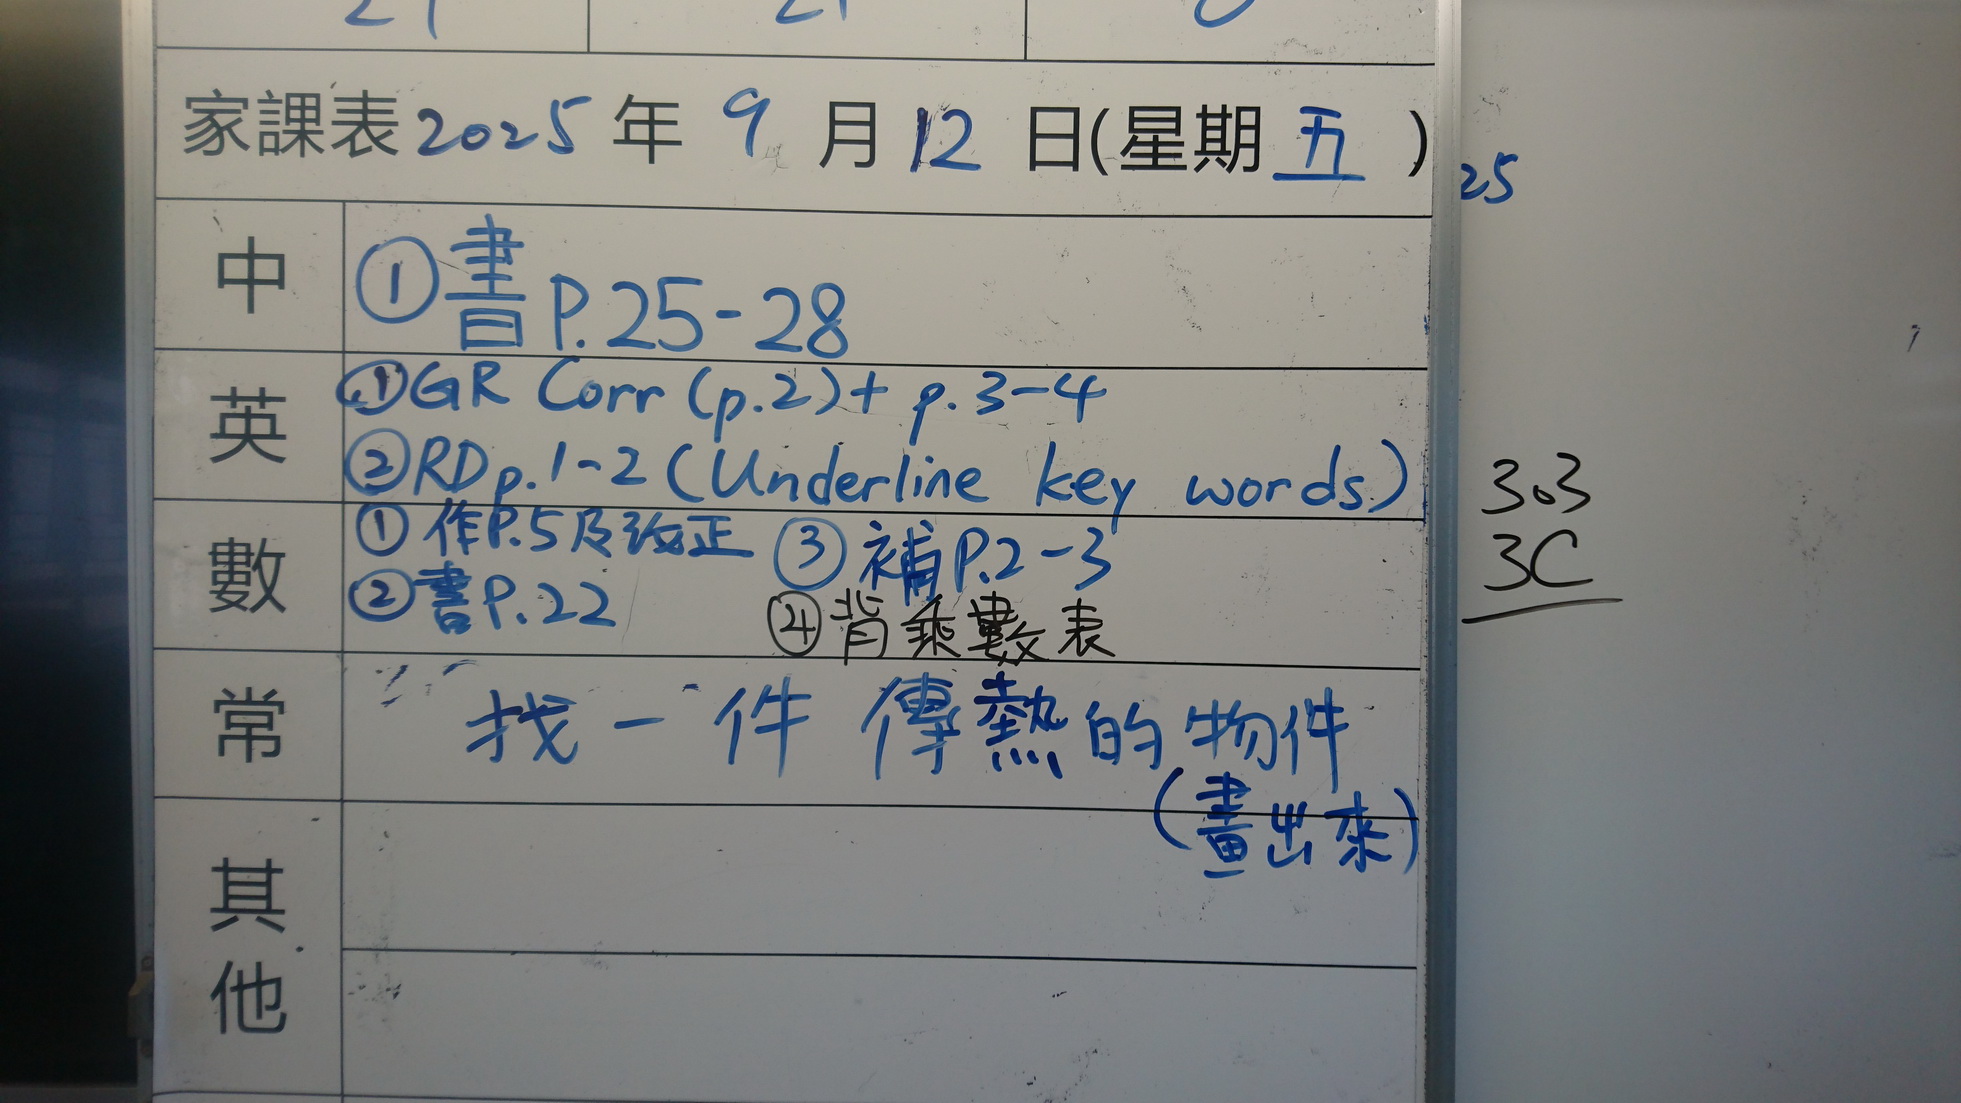 家課表2025年9月12日(星期五)
25
中
①書P.25-28
英
①GR Corr (p.2)+ p.3-4
②RD p.1-2 (Underline key words)
數
①作P.5及改正 ③補P.2-3
②書P.22 ④背乘數表
常
找一件傳熱的物件
(畫出來)
其他
303
3C